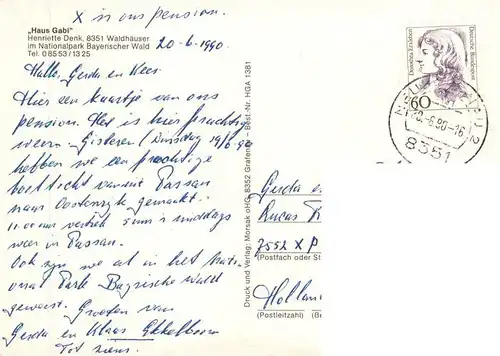 X is ons pension.
„Haus Gabi"
Henriette Denk, 8351 Waldhäuser
im Nationalpark Bayerischer Wald
Tel. 0 85 53/13 25
20-6-1990.
Hallo, Gerda en Kees.
Hier een kaartje van ons
pension. Het is hier prachtig
weer. Gisteren (Dinsdag 19/6-90
hebben we een prachtige
boottocht vanuit Passau
naar Oostenrijk gemaakt.
11.00 uur vertrek 5 uur 's middags
weer in Passau.
Ook zijn we al in het Nati-
onal Park Bayrische Wald
geweest. Groeten van
Gerda en Klaas Ekkelboom
Tot ziens.
Druck und Verlag: Morsak oHG, 8352 Grafenau – Best.-Nr. HGA 1381
Dorothea Erxleben
Deutsche Bundespost
60
-6.90-16
8351
Gerda en
Lucas
7552 X P
(Postfach oder St
Hollan
(Postleitzahl) (Be